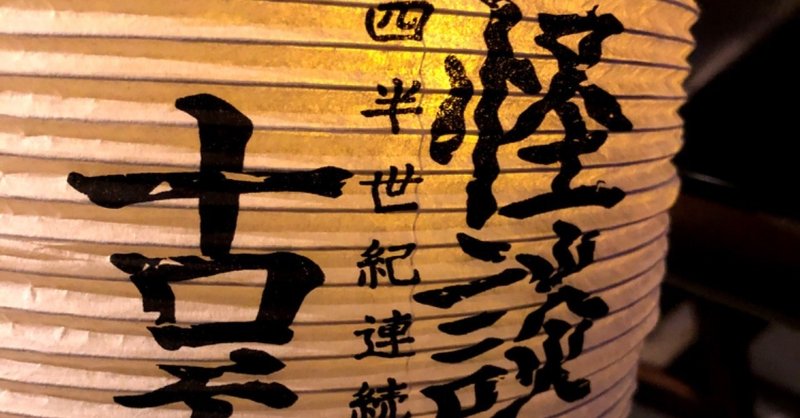 怪談
四半世紀連続
古